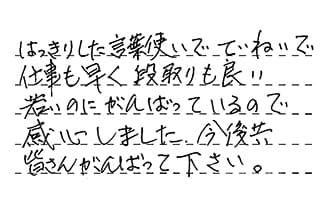 はっきりした言葉使いでていねいで
仕事も早く段取りも良い
若いのにがんばっているので
感心しました。今後共
皆さんがんばって下さい。